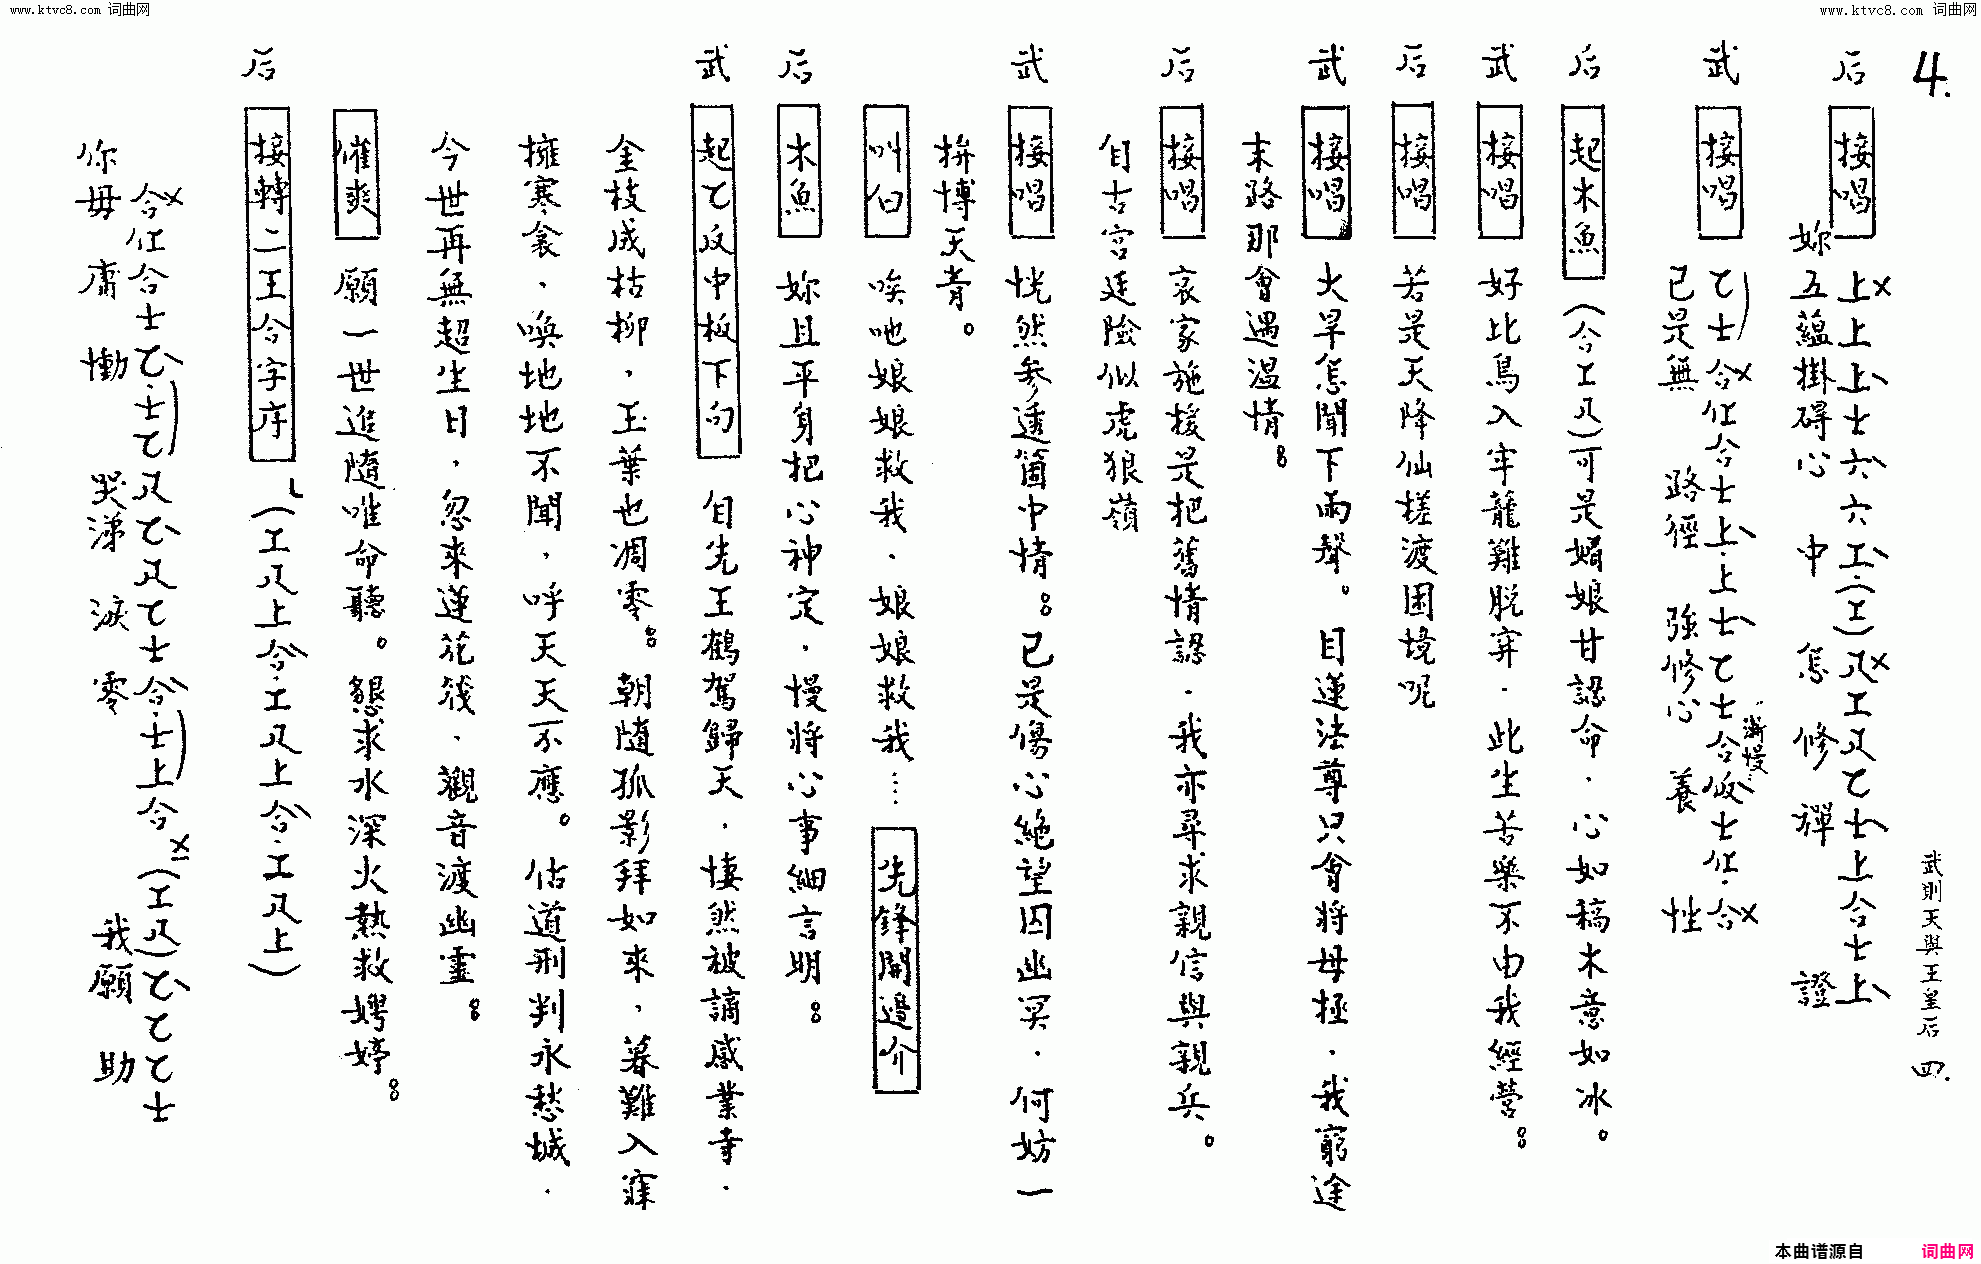 www.ktvc8.com 词曲网
www.ktvc8.com 词曲网
4.
武則天與王皇后 四.
后 接唱 上上上上士六六六工.(工)凡工凡乙士上合士上
妳五蘊掛碍心 中 怎 修 禪 證
武 接唱 乙士合仕合士上.上士乙士合伬士仕.合
漸慢
已是無 路徑 強修心 養 性
后 起木魚 (合工凡)可是媚娘甘認命.心如稿木意如冰。
武 接唱 好比鳥入牢籠難脫弃.此生苦樂不由我經營。
后 接唱 若是天降仙槎渡困境呢
武 接唱 火旱怎聞下雨聲。目蓮法尊只會將母拯.我窮途
末路那會遇温情。
后 接唱 哀家施援是把舊情認.我亦尋求親信與親兵。
自古宮廷險似虎狼嶺
武 接唱 恍然參透箇中情。已是傷心絕望囚幽冥.何妨一
拚博天青。
叫白 唉吔娘娘救我.娘娘救我… 先鋒開邊介
后 木魚 妳且平身把心神定.慢將心事細言明。
武 起乙反中板下句 自先王鶴駕歸天.悽然被謫感業寺.
金枝成枯柳，玉葉也凋零。朝隨孤影拜如來，暮難入寐
擁寒衾.喚地地不聞，呼天天不應。估道刑判永愁城.
今世再無超生日，忽來蓮花筏.觀音渡幽靈。
催爽 願一世追隨唯命聽。懇求水深火熱救娉婷。
后 接轉二王合字序 (工凡上合.工凡上合.工凡上)
合仕合士乙.士乙凡乙凡乙士合.士上合(工凡)乙乙乙士
你毋 庸 慟 哭涕 淚 零 我願 助
本曲谱源自 词曲网